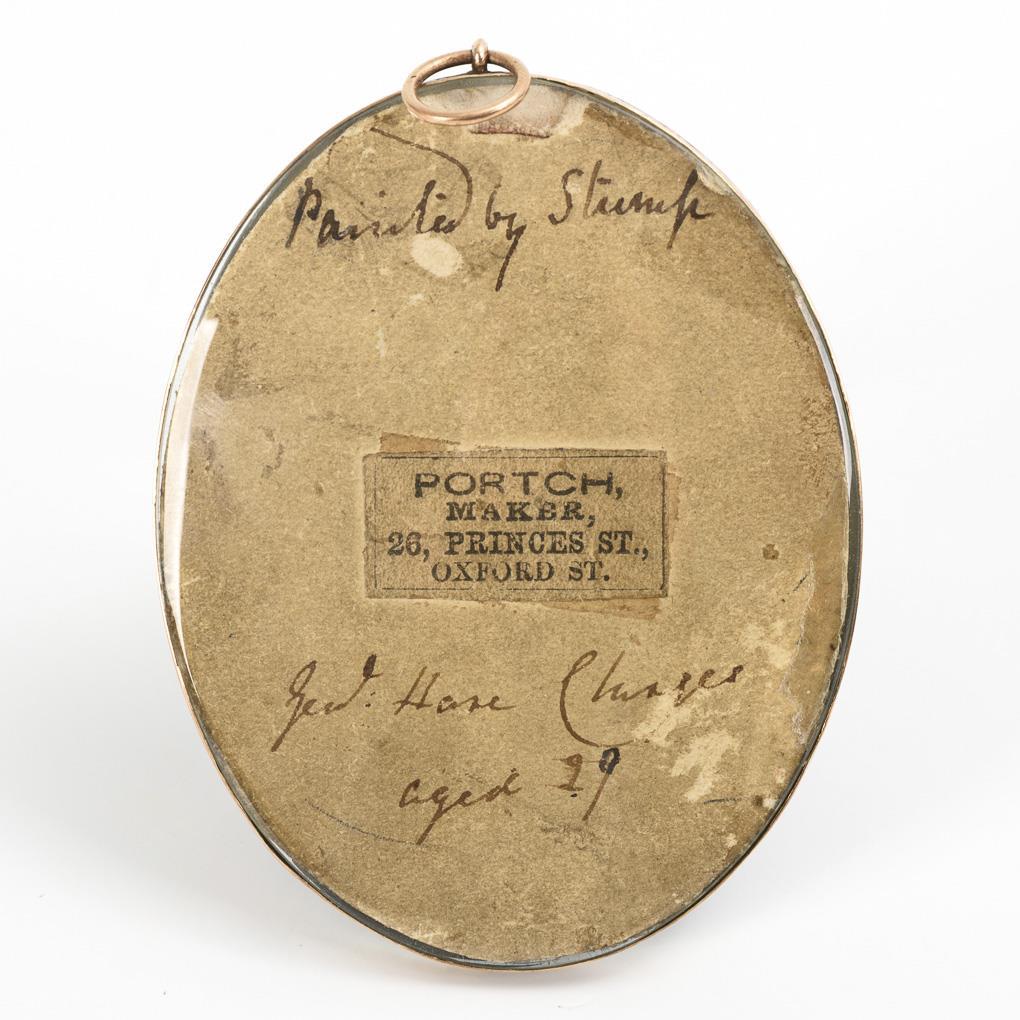 Painted by Stump
PORTCH,
MAKER,
26, PRINCES ST.,
OXFORD ST.
Hare Clarges
aged 29